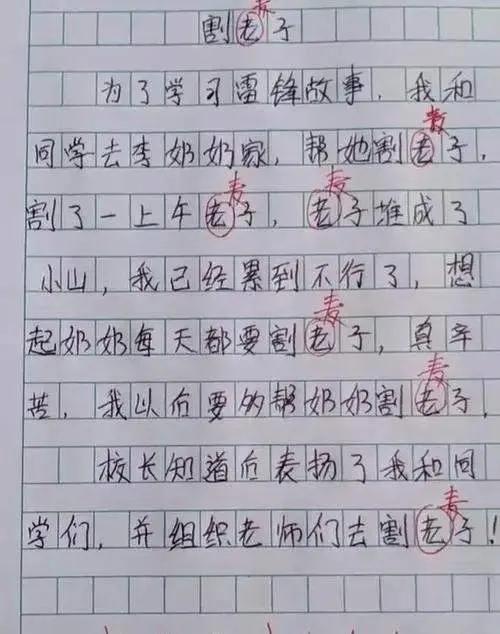 麦
割老子
为了学习雷锋故事，我和
麦
同学去李奶奶家，帮她割老子，
麦 麦
割了一上午老子，老子堆成了
小山，我已经累到不行了，想
麦
起奶奶每天都要割老子，真辛
麦
苦，我以后要多帮奶奶割老子，
校长知道后表扬了我和同
麦
学们，并组织老师们去割老子！